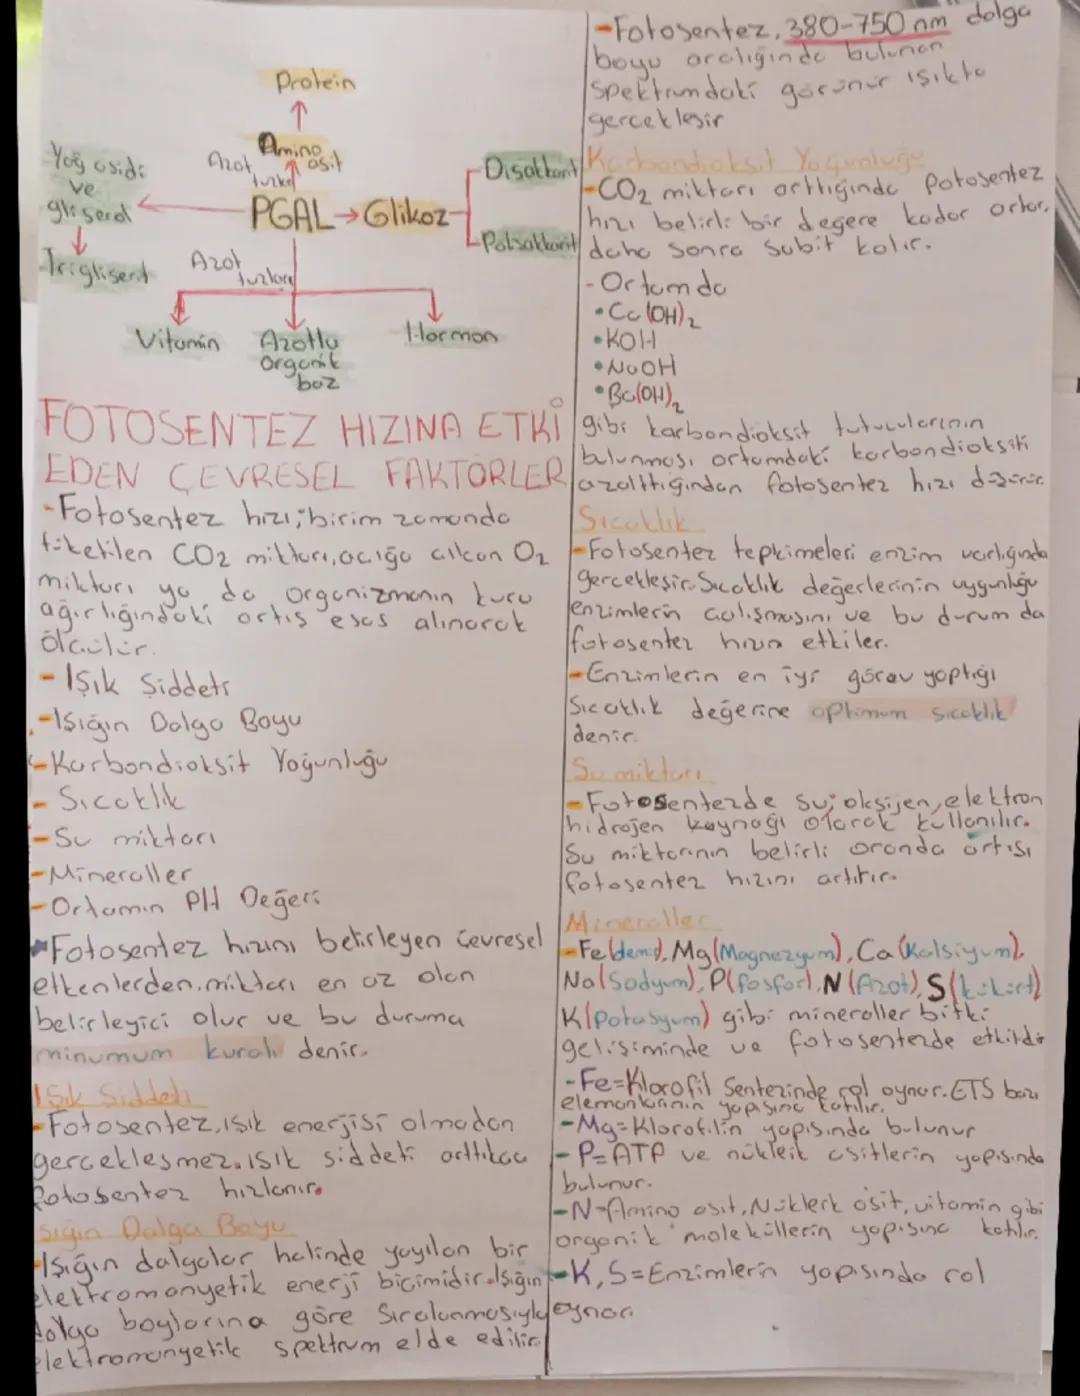 Protein
Amino
asit
Azot
tuzları
Yağ asidi
ve
gliserol
PGAL → Glikoz
Disakkarit
Polisakkarit
Trigliserit
Azot
tuzları
Vitamin
Azotlu
organik
baz
Hormon
FOTOSENTEZ HIZINA ETKİ
EDEN ÇEVRESEL FAKTÖRLER
-Fotosentez hızı; birim zamanda
tüketilen CO2 miktarı, açığa çıkan O2
miktarı ya da organizmanın kuru
ağırlığındaki artış esas alınarak
ölçülür.
- Işık Şiddeti
-Işığın Dalga Boyu
-Karbondioksit Yoğunluğu
- Sıcaklık
-Su miktarı
-Mineraller
-Ortamın PH Değeri
*Fotosentez hızını belirleyen çevresel
etkenlerden, miktarı en az olan
belirleyici olur ve bu duruma
minumum kuralı denir.
Işık Şiddeti
-Fotosentez, ışık enerjisi olmadan
gerçekleşmez. ışık şiddeti arttıkça
fotosentez hızlanır.
Işığın Dalga Boyu
-Işığın dalgalar halinde yayılan bir
elektromanyetik enerji biçimidir. Işığın
dolga boylarına göre sıralanmasıyla
elektromanyetik spektrum elde edilir.
-Fotosentez, 380-750 nm dalga
boyu aralığında bulunan
spektrumdaki görünür ışıkta
gerçekleşir
Karbondioksit Yoğunluğu
-CO2 miktarı arttığında fotosentez
hızı belirli bir değere kadar artar,
daha sonra sabit kalır.
- Ortamda
•Ca(OH)2
•KOH
•NaOH
•Ba(OH)2
gibi karbondioksit tutucularının
bulunması ortamdaki karbondioksiti
azalttığından fotosentez hızı düşürür.
Sıcaklık
-Fotosentez tepkimeleri enzim varlığında
gerçekleşir. Sıcaklık değerlerinin uygunluğu
enzimlerin çalışmasını ve bu durum da
fotosentez hızını etkiler.
-Enzimlerin en iyi görev yaptığı
sıcaklık değerine optimum sıcaklık
denir.
Su miktarı
-Fotosentezde su; oksijen, elektron
hidrojen kaynağı olarak kullanılır.
Su miktarının belirli oranda artışı
fotosentez hızını artırır.
Mineraller
-Fe(demir), Mg(Magnezyum), Ca(Kalsiyum),
Na(Sodyum), P(fosfor), N(Azot), S(kükürt)
K(potasyum) gibi mineraller bitki
gelişiminde ve fotosentezde etkilidir
-Fe=Klorofil Sentezinde rol oynar. ETS bazı
elemanlarının yapısına katılır.
-Mg=Klorofilin yapısında bulunur
-P=ATP ve nükleik asitlerin yapısında
bulunur.
-N=Amino asit, Nükleik asit, vitamin gibi
organik moleküllerin yapısına katılır.
-K, S=Enzimlerin yapısında rol
oynar.